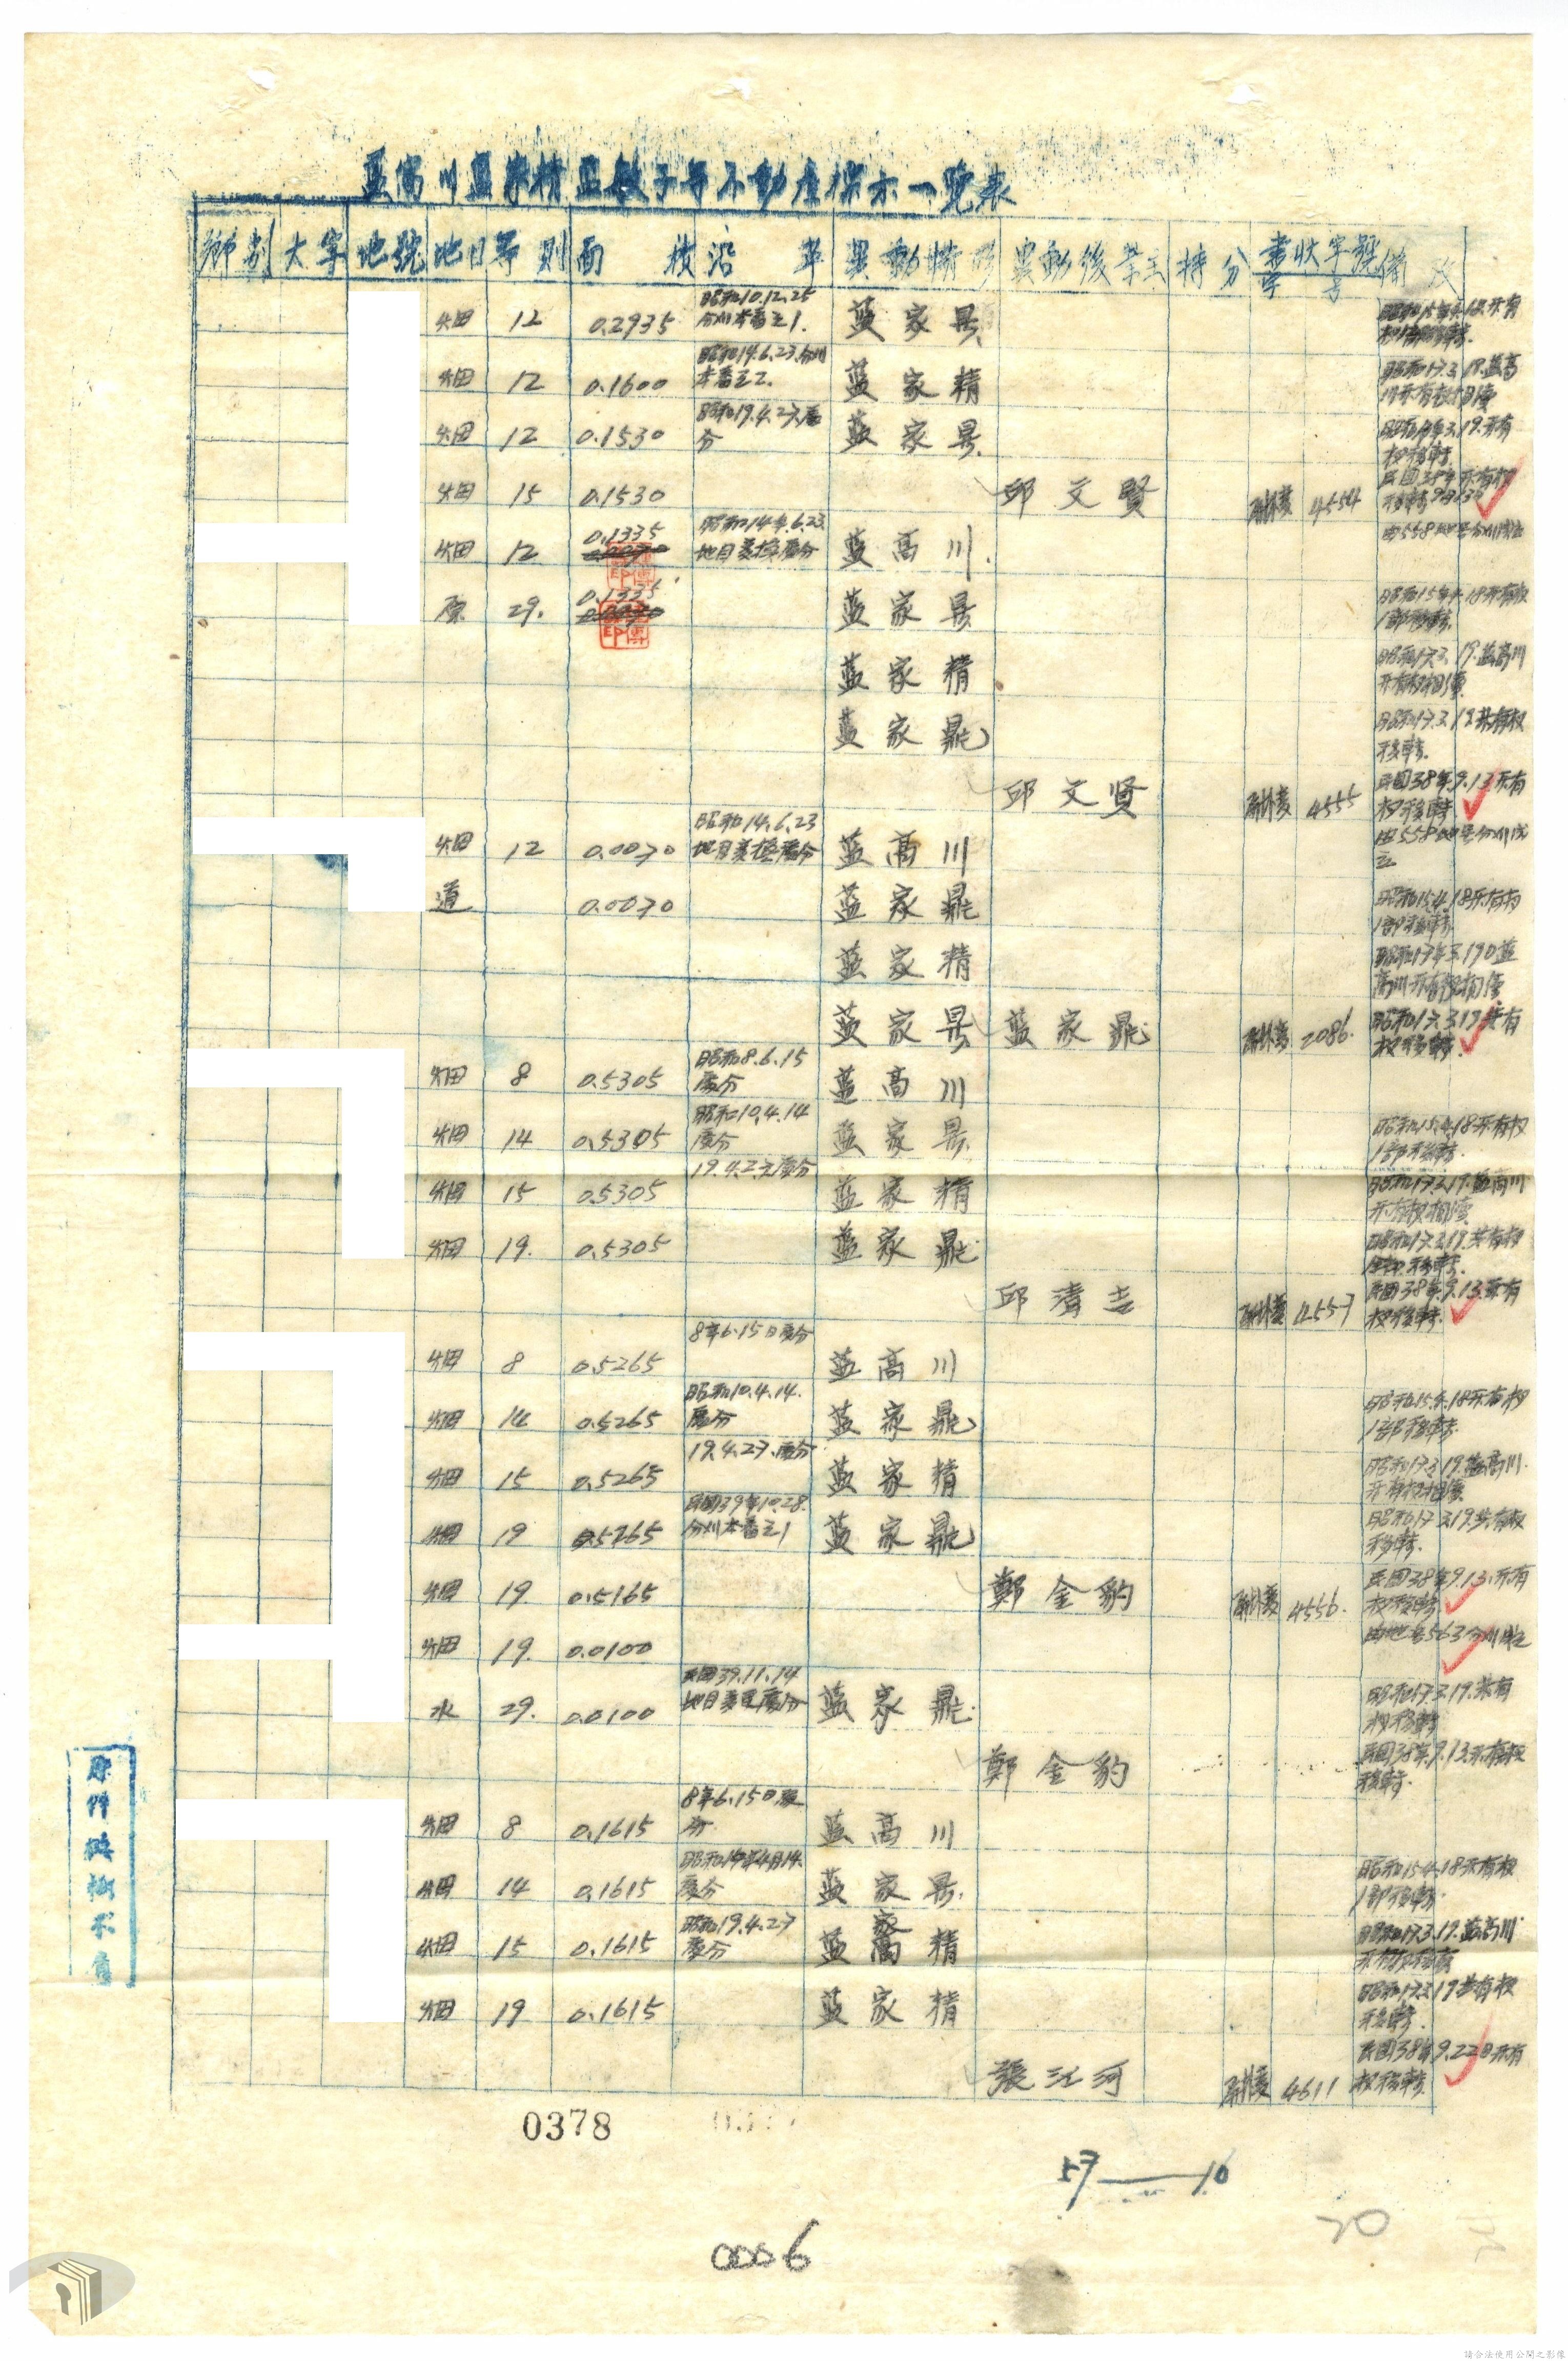 藍高川藍家精藍敏子等不動產標示一覽表
鄉別 大字 地號 地目 等則 面積 沿革 異動情形 異動後業主 持分 書狀字號 備攷
字 号
畑 12 0.2935 昭和10.12.25 分割本番之1. 藍家昺
畑 12 0.1600 昭和14.6.23.分割 本番之2. 藍家精 昭和17.3.19.藍高川所有权相續
畑 12 0.1530 昭和19.4.27.處分 藍家昺
畑 15 0.1530 邱文賢 4554 民國38年所有权移轉9月13日
畑 12 0.1335 昭和14年.6.23. 地目変換處分 藍高川. 由558地号分割成立
原 29. 0.1335 藍家昺 昭和15年4.18所有权 1部移轉.
藍家精 昭和17.3.19.藍高川 所有权相續
藍家鼎 昭和17.3.19.共有权 移轉.
邱文贤 4555 民國38年.9.13.所有 权移轉
畑 12 0.0070 昭和14.6.23 地目変換處分 藍高川 由558地号分割成立
道 0.0070 藍家鼎 昭和15.4.18所有权 1部移轉
藍家精 昭和17年3.19日藍 高川所有权相續
藍家昺 藍家鼎 2086. 昭和17.3.19共有 权移轉.
畑 8 0.5305 昭和8.6.15 處分 藍高川
畑 14 0.5305 昭和10.4.14 處分 藍家昺 昭和15.4.18所有权 1部移轉.
畑 15 0.5305 19.4.27.處分 藍家精 昭和17.3.19.藍高川 所有权相續
畑 19. 0.5305 藍家鼎 昭和17.3.19.共有权 全部移轉.
邱清吉 4557 民國38年.9.13.所有 权移轉.
畑 8 0.5265 8年6.15日處分 藍高川
畑 14 0.5265 昭和10.4.14. 處分 藍家鼎 昭和15.4.18所有权 1部移轉.
畑 15 0.5265 19.4.27.處分 藍家精 昭和17.3.19.藍高川. 所有权相續
畑 19 0.5265 民國39年10.28. 分割本番之1 藍家鼎 昭和17.3.19.共有权 移轉.
畑 19 0.5165 鄭金豹 4556. 民國38年9.13.所有 权移轉
畑 19. 0.0100 由地号563分割成立
水 29. 0.0100 民國39.11.14 地目変更處分 藍家鼎. 昭和17.3.19.共有 权移轉
鄭金豹 民國38年.9.13.所有权 移轉.
畑 8 0.1615 8年6.15日處分 藍高川
畑 14 0.1615 處分 藍家昺. 昭和15.4.18所有权 1部移轉.
畑 15 0.1615 昭和19.4.27 處分 藍家精 昭和17.3.19.藍高川
畑 19 0.1615 藍家精 昭和17.3.19共有权 移轉.
張江河 4611 民國38年9.22日所有 权移轉.
原件模糊不清
0378
57——16
20
0006
請合法使用公開之影像